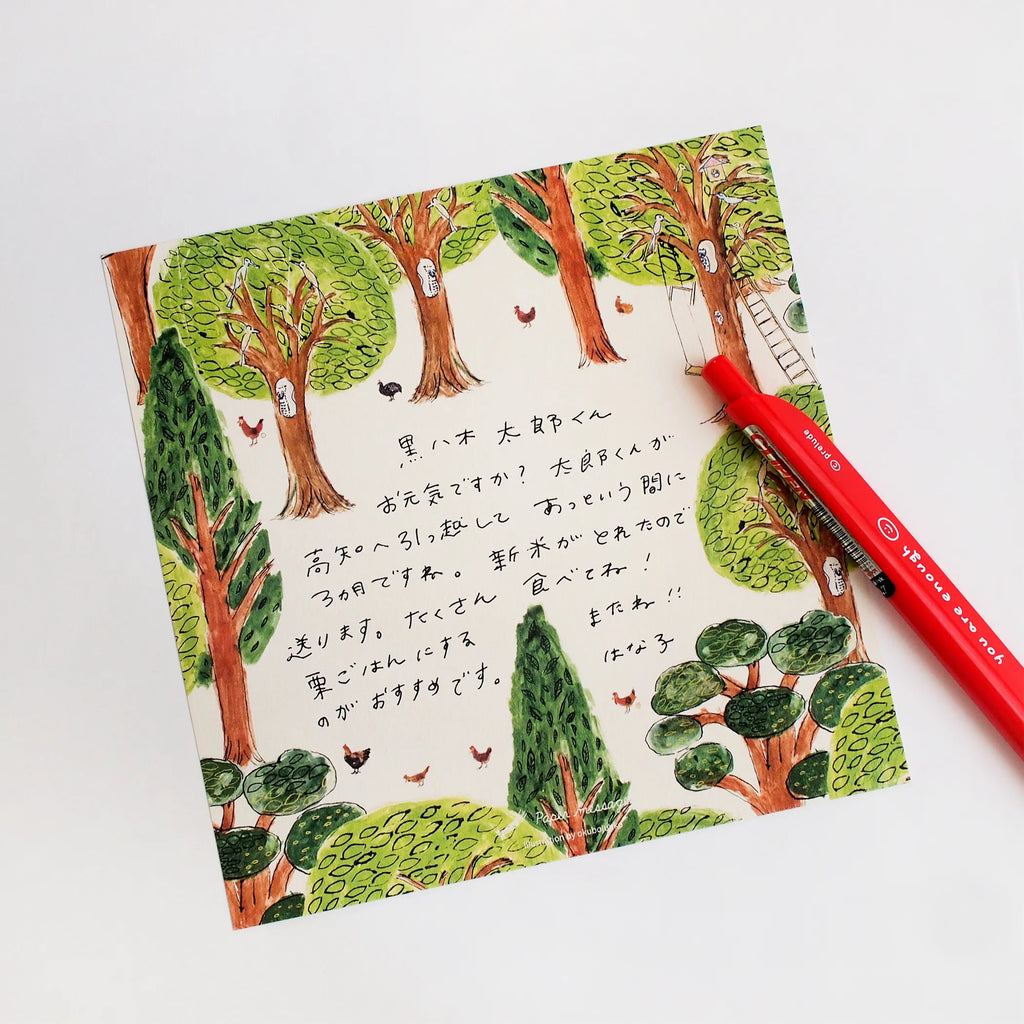 黒八木 太郎くん
お元気ですか? 太郎くんが
高知へ引っ越して あっという間に
3カ月ですね。 新米がとれたので
送ります。たくさん 食べてね!
栗ごはんにする
のがおすすめです。
またね!!
はな子
Paper message
illustration by okubo
prelude
you are enough